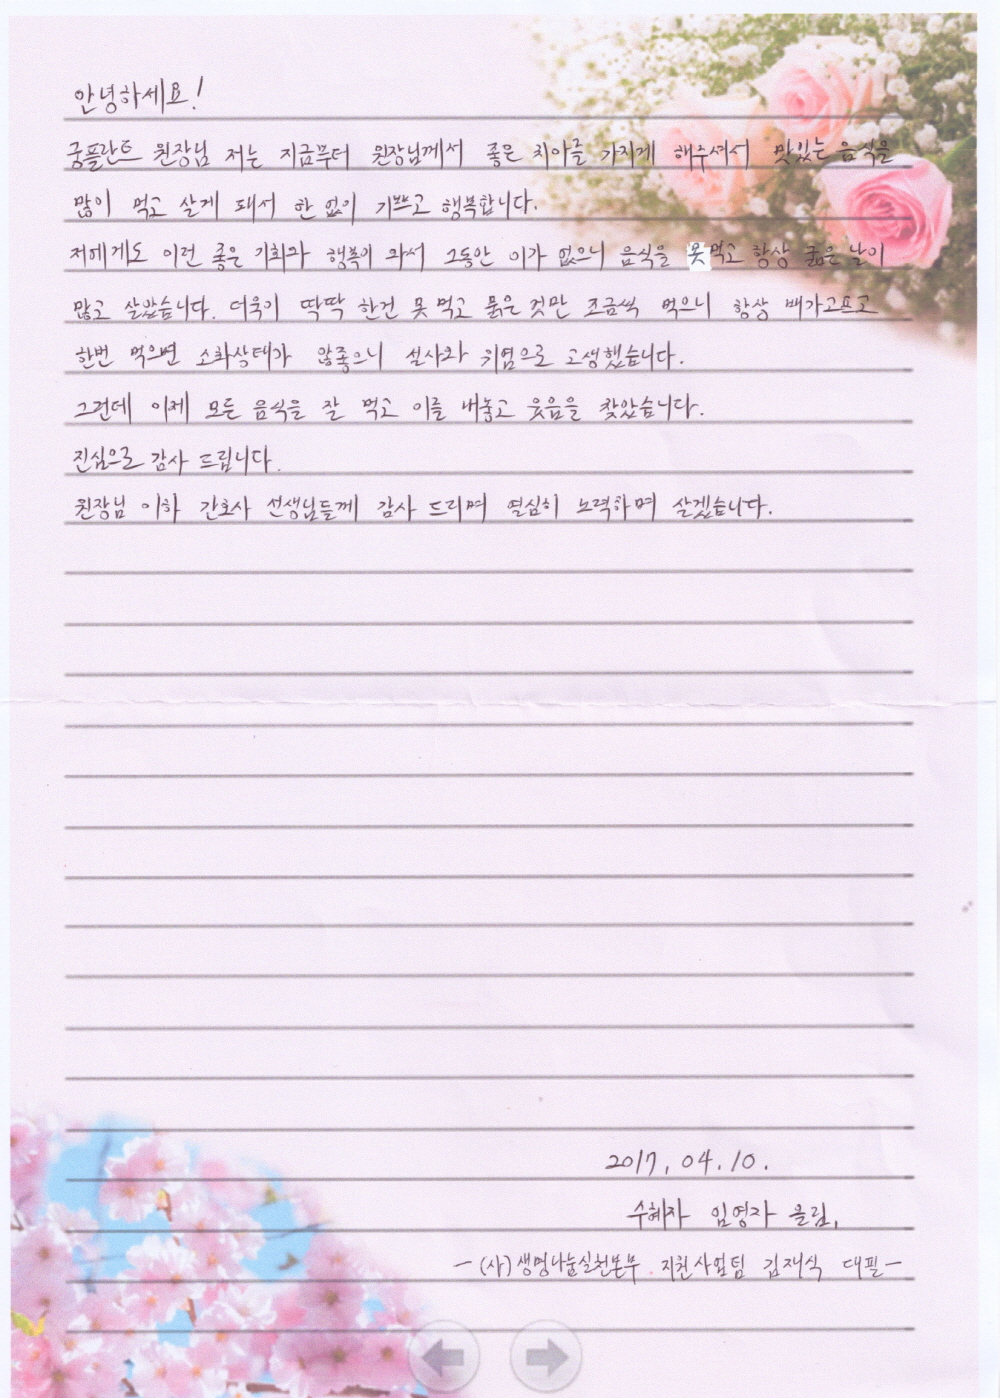 안녕하세요!
궁플란트 원장님 저는 지금부터 원장님께서 좋은 치아를 가지게 해주셔서 맛있는 음식을
많이 먹고 살게 돼서 한 없이 기쁘고 행복합니다.
저에게도 이런 좋은 기회와 행복이 와서 그동안 이가 없으니 음식을 못먹고 항상 굶은 날이
많고 살았습니다. 더욱이 딱딱 한건 못 먹고 묽은 것만 조금씩 먹으니 항상 배가고프고
한번 먹으면 소화상태가 않좋으니 설사와 위염으로 고생했습니다.
그런데 이제 모든 음식을 잘 먹고 이를 내놓고 웃음을 찾았습니다.
진심으로 감사 드립니다.
원장님 이하 간호사 선생님들께 감사 드리며 열심히 노력하며 살겠습니다.
2017. 04. 10.
수혜자 임영자 올림.
- (사)생명나눔실천본부 지원사업팀 김재식 대필 -